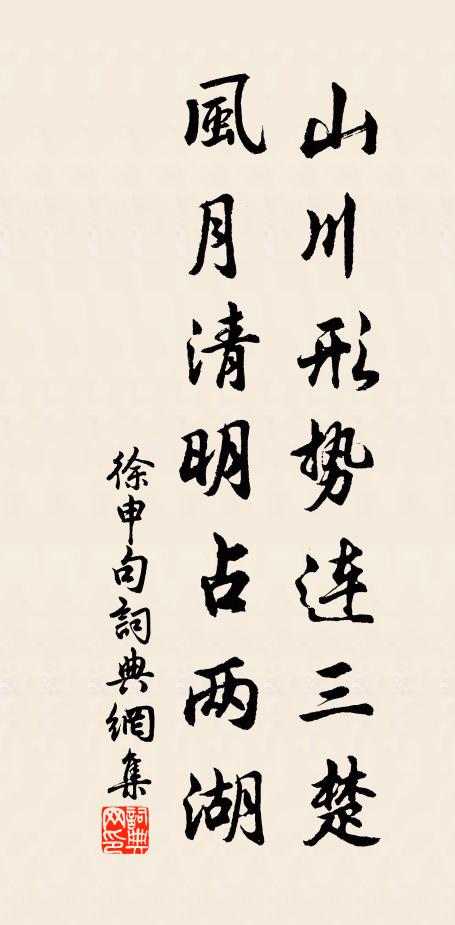 山川形势连三楚
風月清明占两湖
徐申句詞典網集
詞典网印